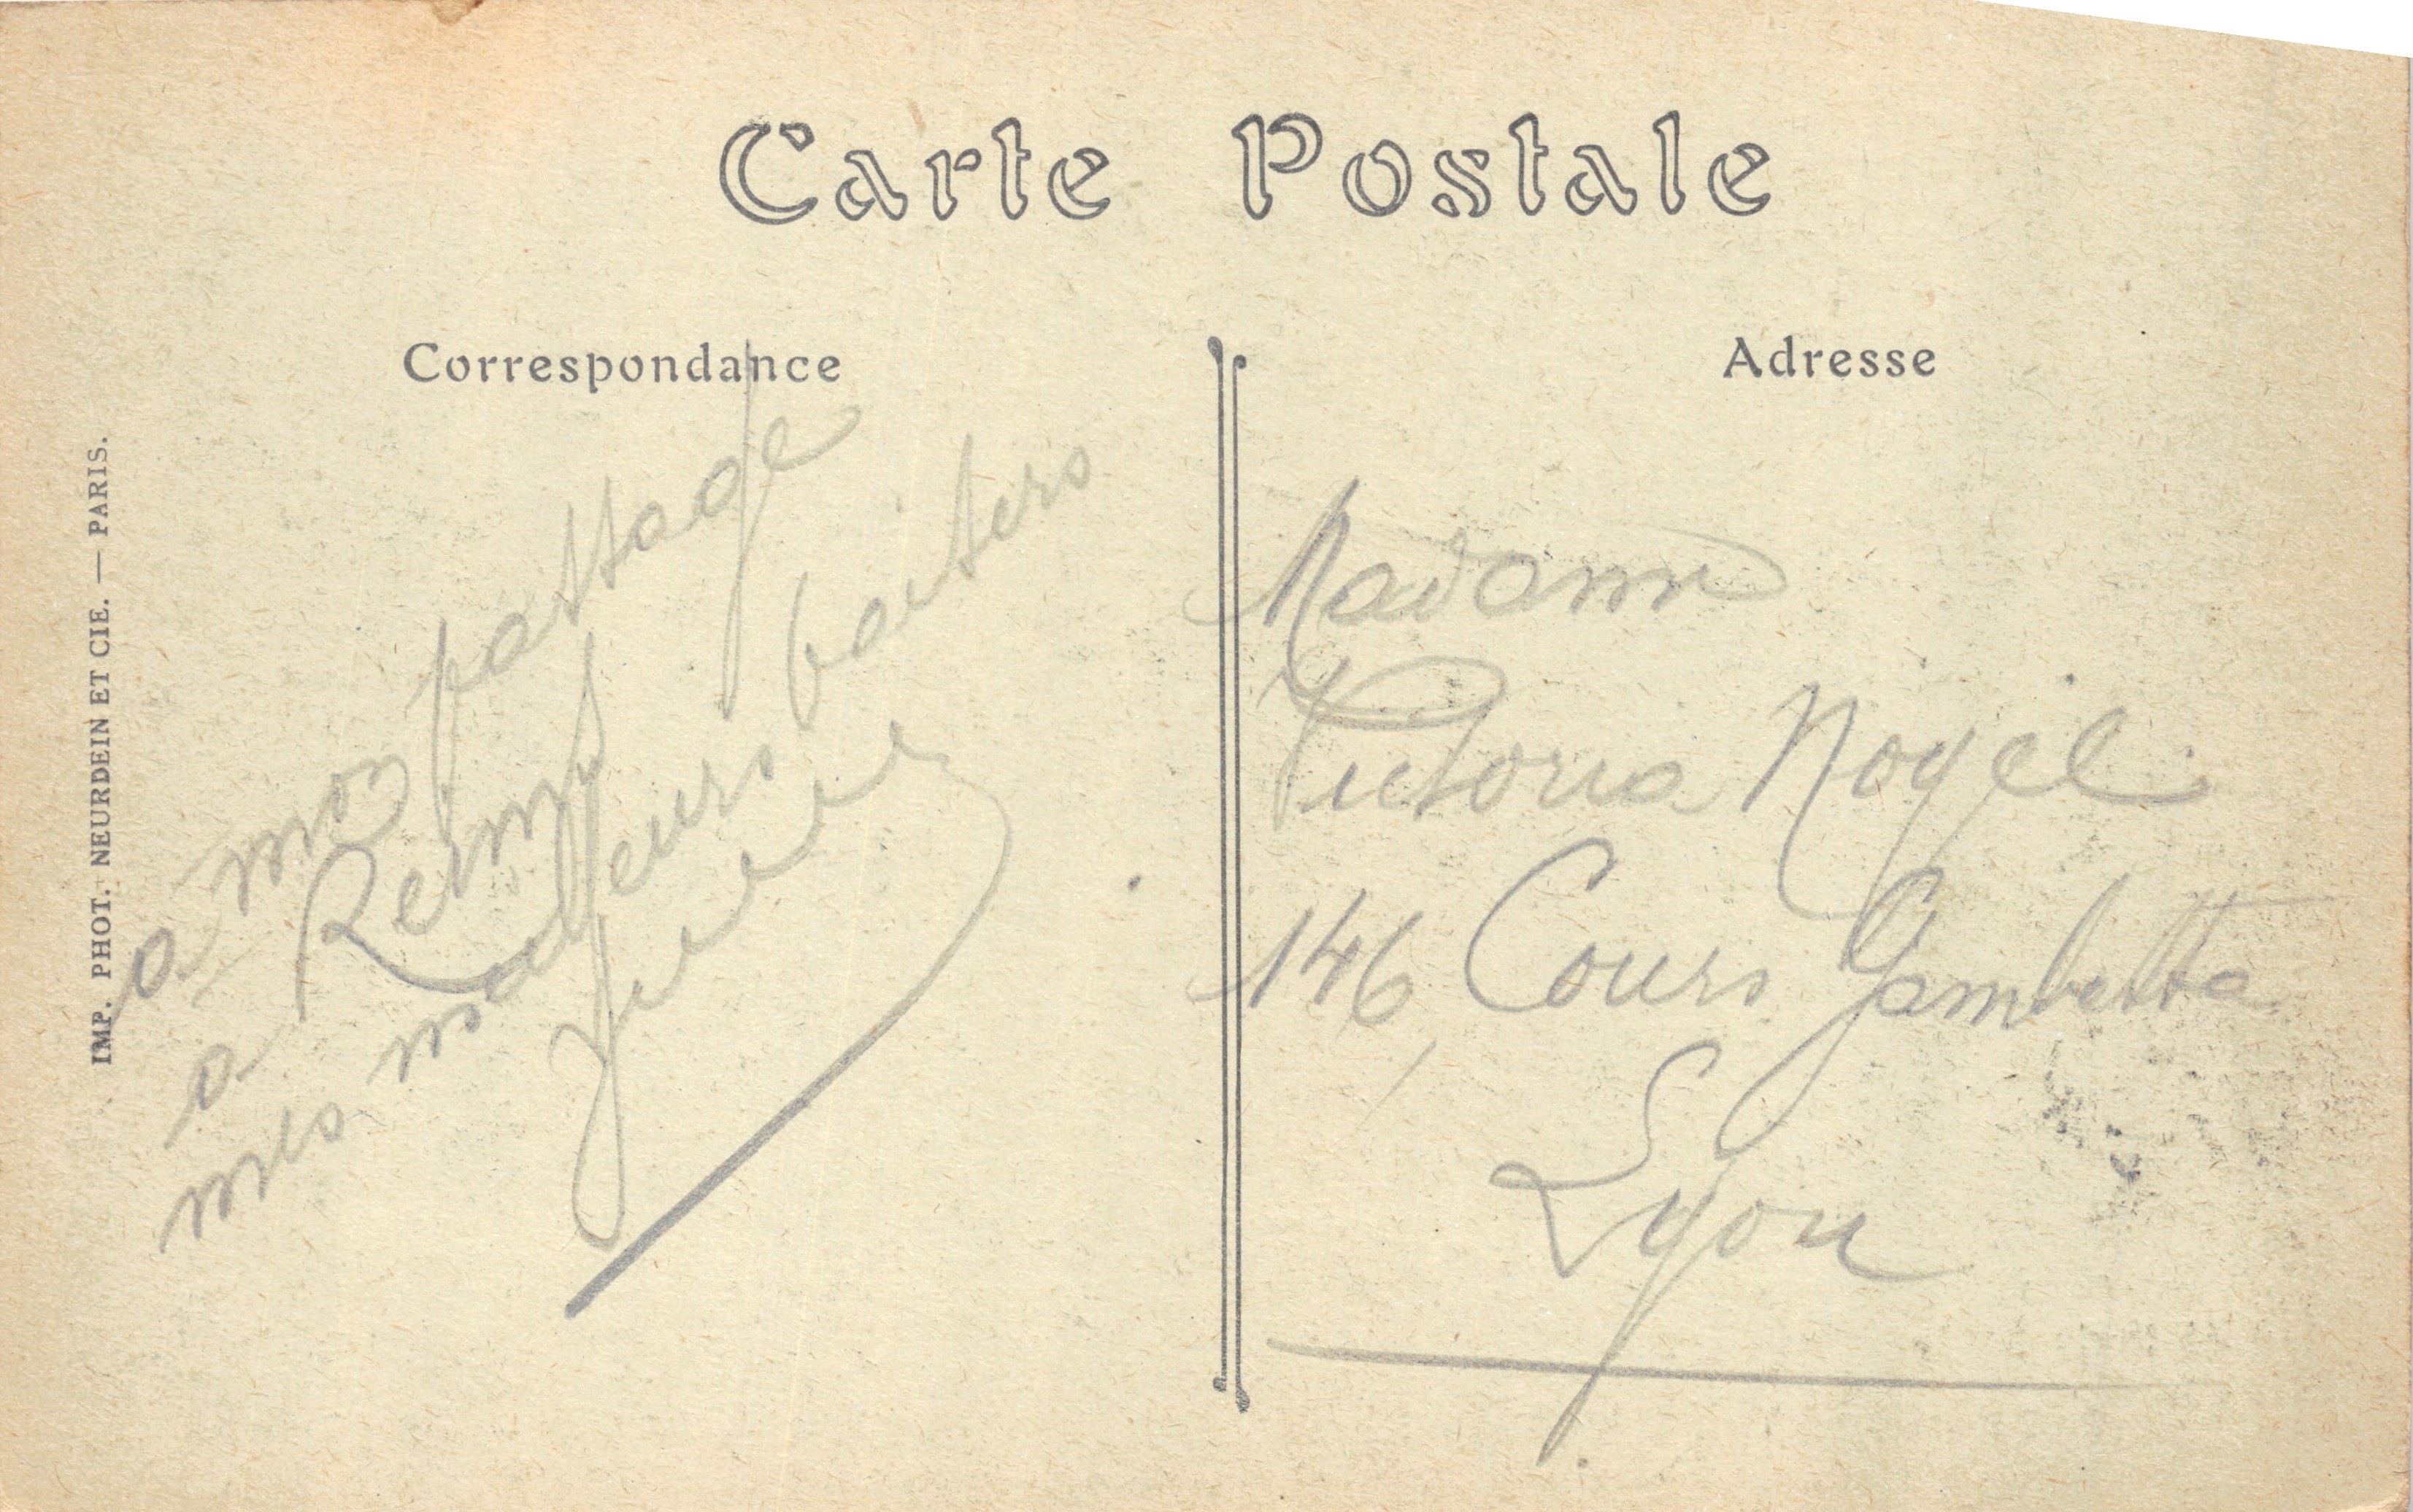 Carte Postale
Correspondance
a mon passage
a Reims
mes meilleurs baisers
Adresse
Madame
Victoria Noyel
146, Cours Gambetta
Lyon
IMP. PHOT. NEURDEIN ET CIE. — PARIS.